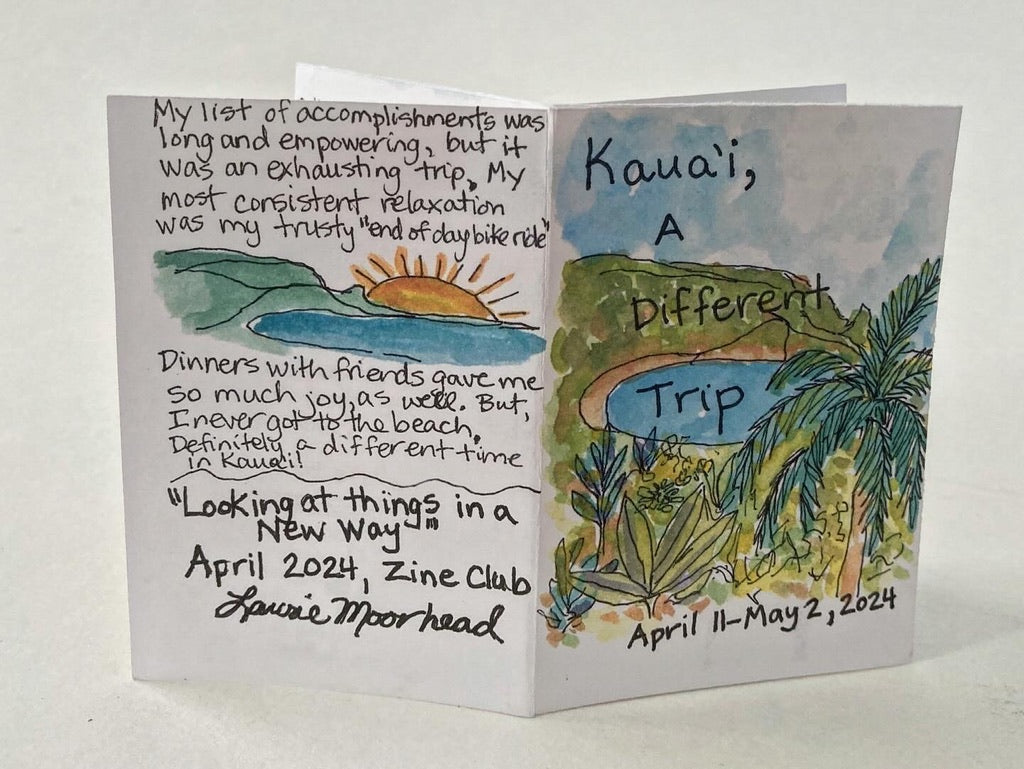 My list of accomplishments was
long and empowering, but it
was an exhausting trip. My
most consistent relaxation
was my trusty "end of day bike ride"
Dinners with friends gave me
so much joy, as well. But,
I never got to the beach.
Definitely a different time
in Kaua'i!
"Looking at things in a
New Way"
April 2024, Zine Club
Laurie Moorhead
Kaua'i,
A
Different
Trip
April 11-May 2, 2024